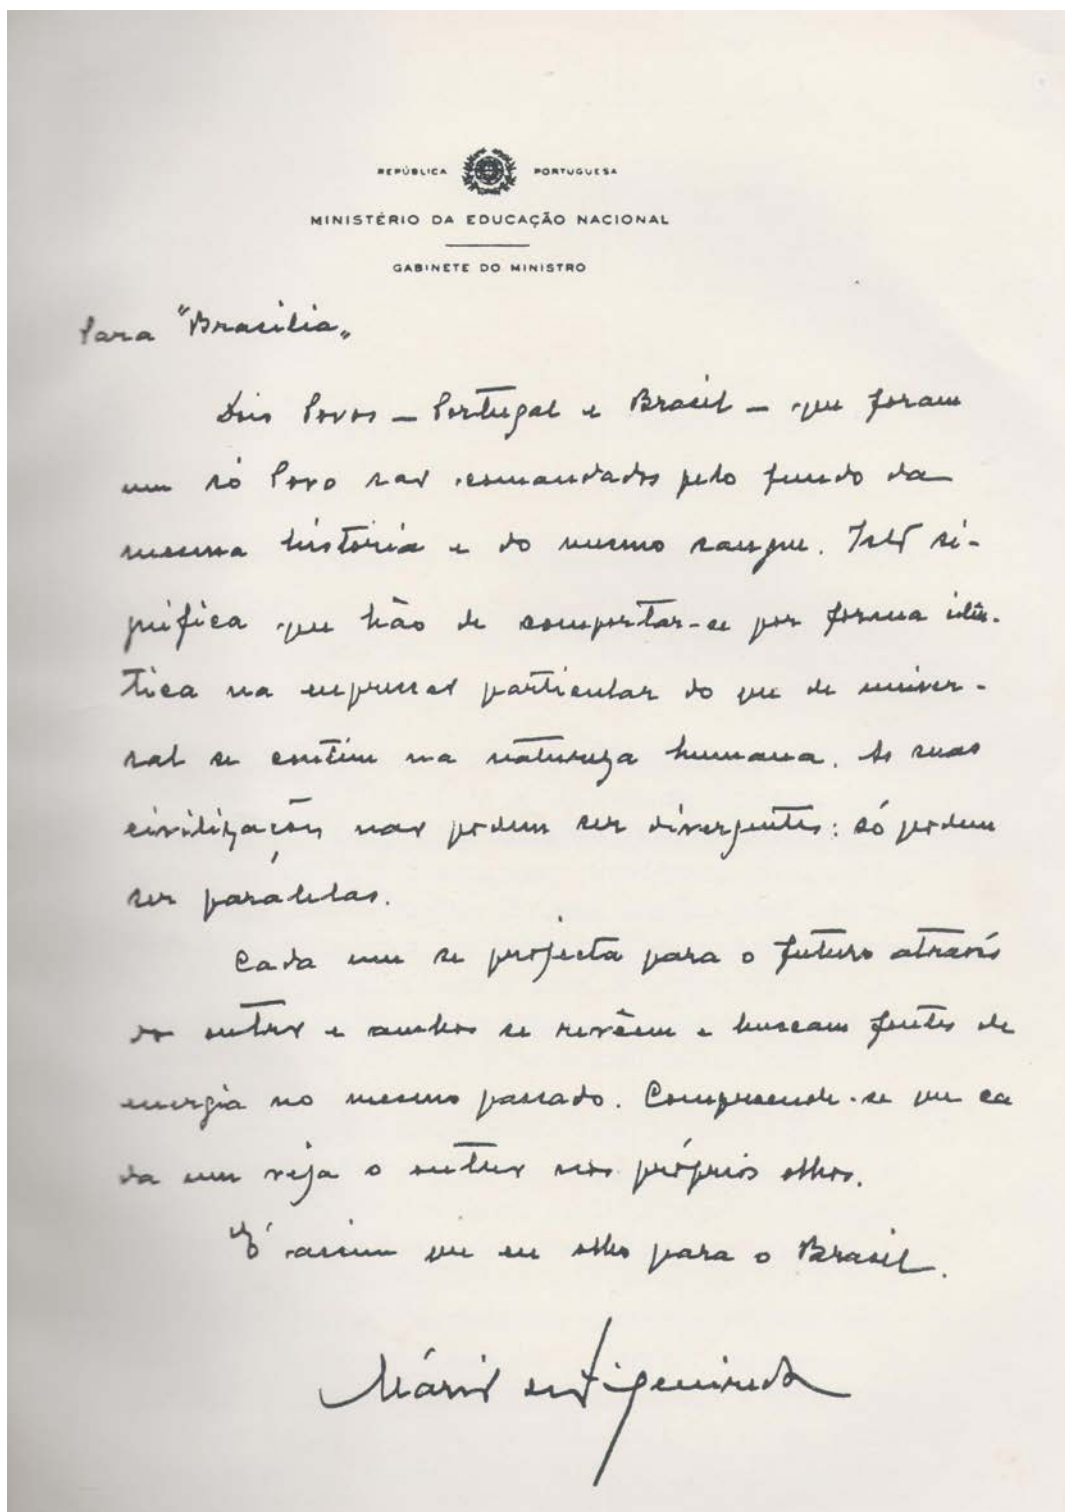 REPÚBLICA PORTUGUESA
MINISTÉRIO DA EDUCAÇÃO NACIONAL
GABINETE DO MINISTRO
Para "Brasilia„
Dois Povos — Portugal e Brasil — que foram
um só Povo são comandados pelo fundo da
mesma história e do mesmo sangue. Isto si-
gnifica que hão de comportar-se por forma idên-
tica na expressão particular do que de univer-
sal se contém na natureza humana. As suas
civilizações não podem ser divergentes: só podem
ser paralelas.
Cada um se projecta para o futuro através
do outro e ambos se revêem e buscam fontes de
energia no mesmo passado. Compreende-se que ca
da um veja o outro nos próprios olhos.
É assim que eu olho para o Brasil.
Mário de Figueiredo